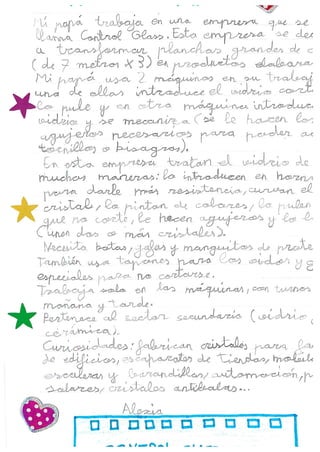 Mi papá trabaja en una empresa que se
llama Control Glass. Esta empresa se dec
a transformar planchas grandes de c
(de 7 metros x 3) en productos elabora
Mi papá usa 2 máquinas en su trabaj
una de ellas introduce el vidrio cort
lo pule y en otra máquina introduc
vidrio y se mecaniza (se le hacen los
agujeros necesarios para poder
tornillos o bisagras).
En esta empresa tratan el vidrio de
muchas maneras: lo introducen en horno
para darle más resistencia, curvan el
cristal, lo pintan de colores, lo pulen
que no corte, le hacen agujeros y lo
(unen dos o más cristales).
Necesita botas, gafas y manguitos de prote
También usa tapones para los oidos y g
especiales para no cortarse.
Trabaja solo en las máquinas, con turnos
mañana y tarde.
Pertenece al sector secundario (vidrio,
cerámica).
Curiosidades: fabrican cristales para fa
de edificios, escaparates de tiendas,
escaleras y barandillas, automoción, p
solares, cristales antibalas...
Alexia